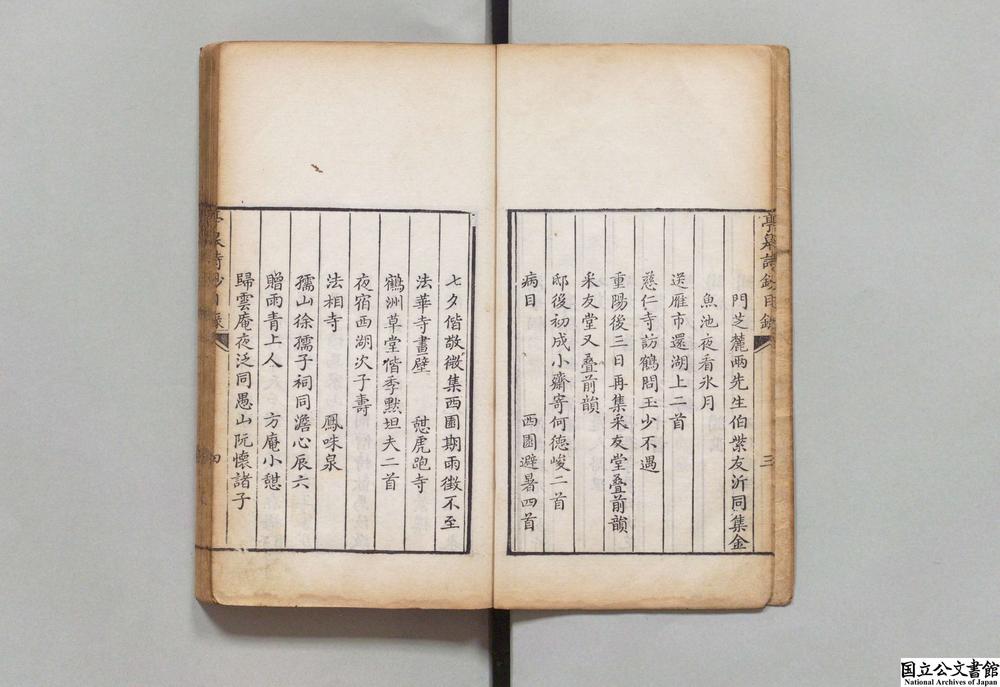 亭皋詩鈔目錄
三
門芝麓兩先生伯紫友沂同集金
魚池夜看氷月
送雁市還湖上二首
慈仁寺訪鶴問玉少不遇
重陽後三日再集采友堂叠前韻
采友堂又叠前韻
邸後初成小齋寄何德峻二首
病目 西園避暑四首
七夕偕敬微集西園期雨徵不至
法華寺畫壁 憇虎跑寺
鶴洲草堂偕季黙坦夫二首
夜宿西湖次子壽
法相寺 鳳咮泉
孺山徐孺子祠同澹心辰六
贈雨青上人 方庵小憇
歸雲庵夜泛同愚山阮懷諸子
亭皋詩鈔目錄
四
国立公文書館
National Archives of Japan